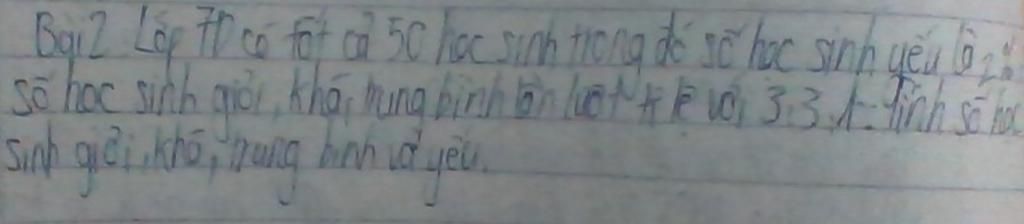 Bài 2 Lớp 7D có tất cả 50 học sinh trong đó số học sinh yếu là
số học sinh giỏi, khá, trung bình lần lượt tỉ lệ với 3, 3, 1. Tính số học
sinh giỏi, khá, trung bình và yếu.